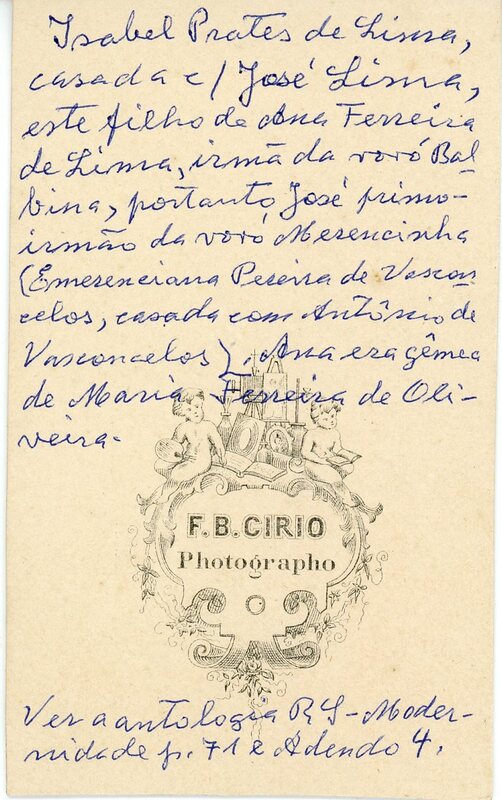 Isabel Prates de Lima,
casada c/ José Lima,
este filho de Ana Ferreira
de Lima, irmã da vovó Bal-
bina, portanto, José primo-
irmão da vovó Merencinha
(Emerenciana Pereira de Vascon
celos, casada com Antônio de
Vasconcelos). Ana era gêmea
de Maria Ferreira de Oli-
veira.
F.B. CIRIO
Photographo
Ver a antologia RS-Moder-
nidade p. 71 e Adendo 4.